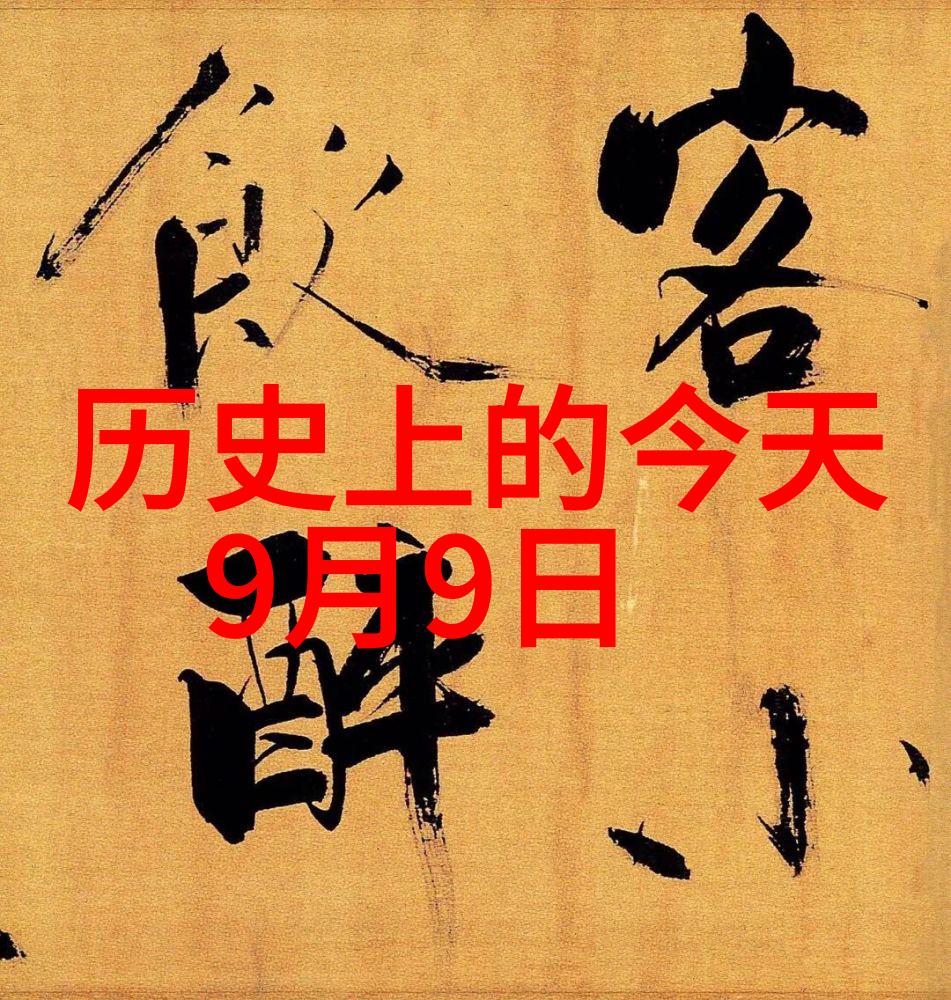 历史上的今天
9月9日
客小
飲醉